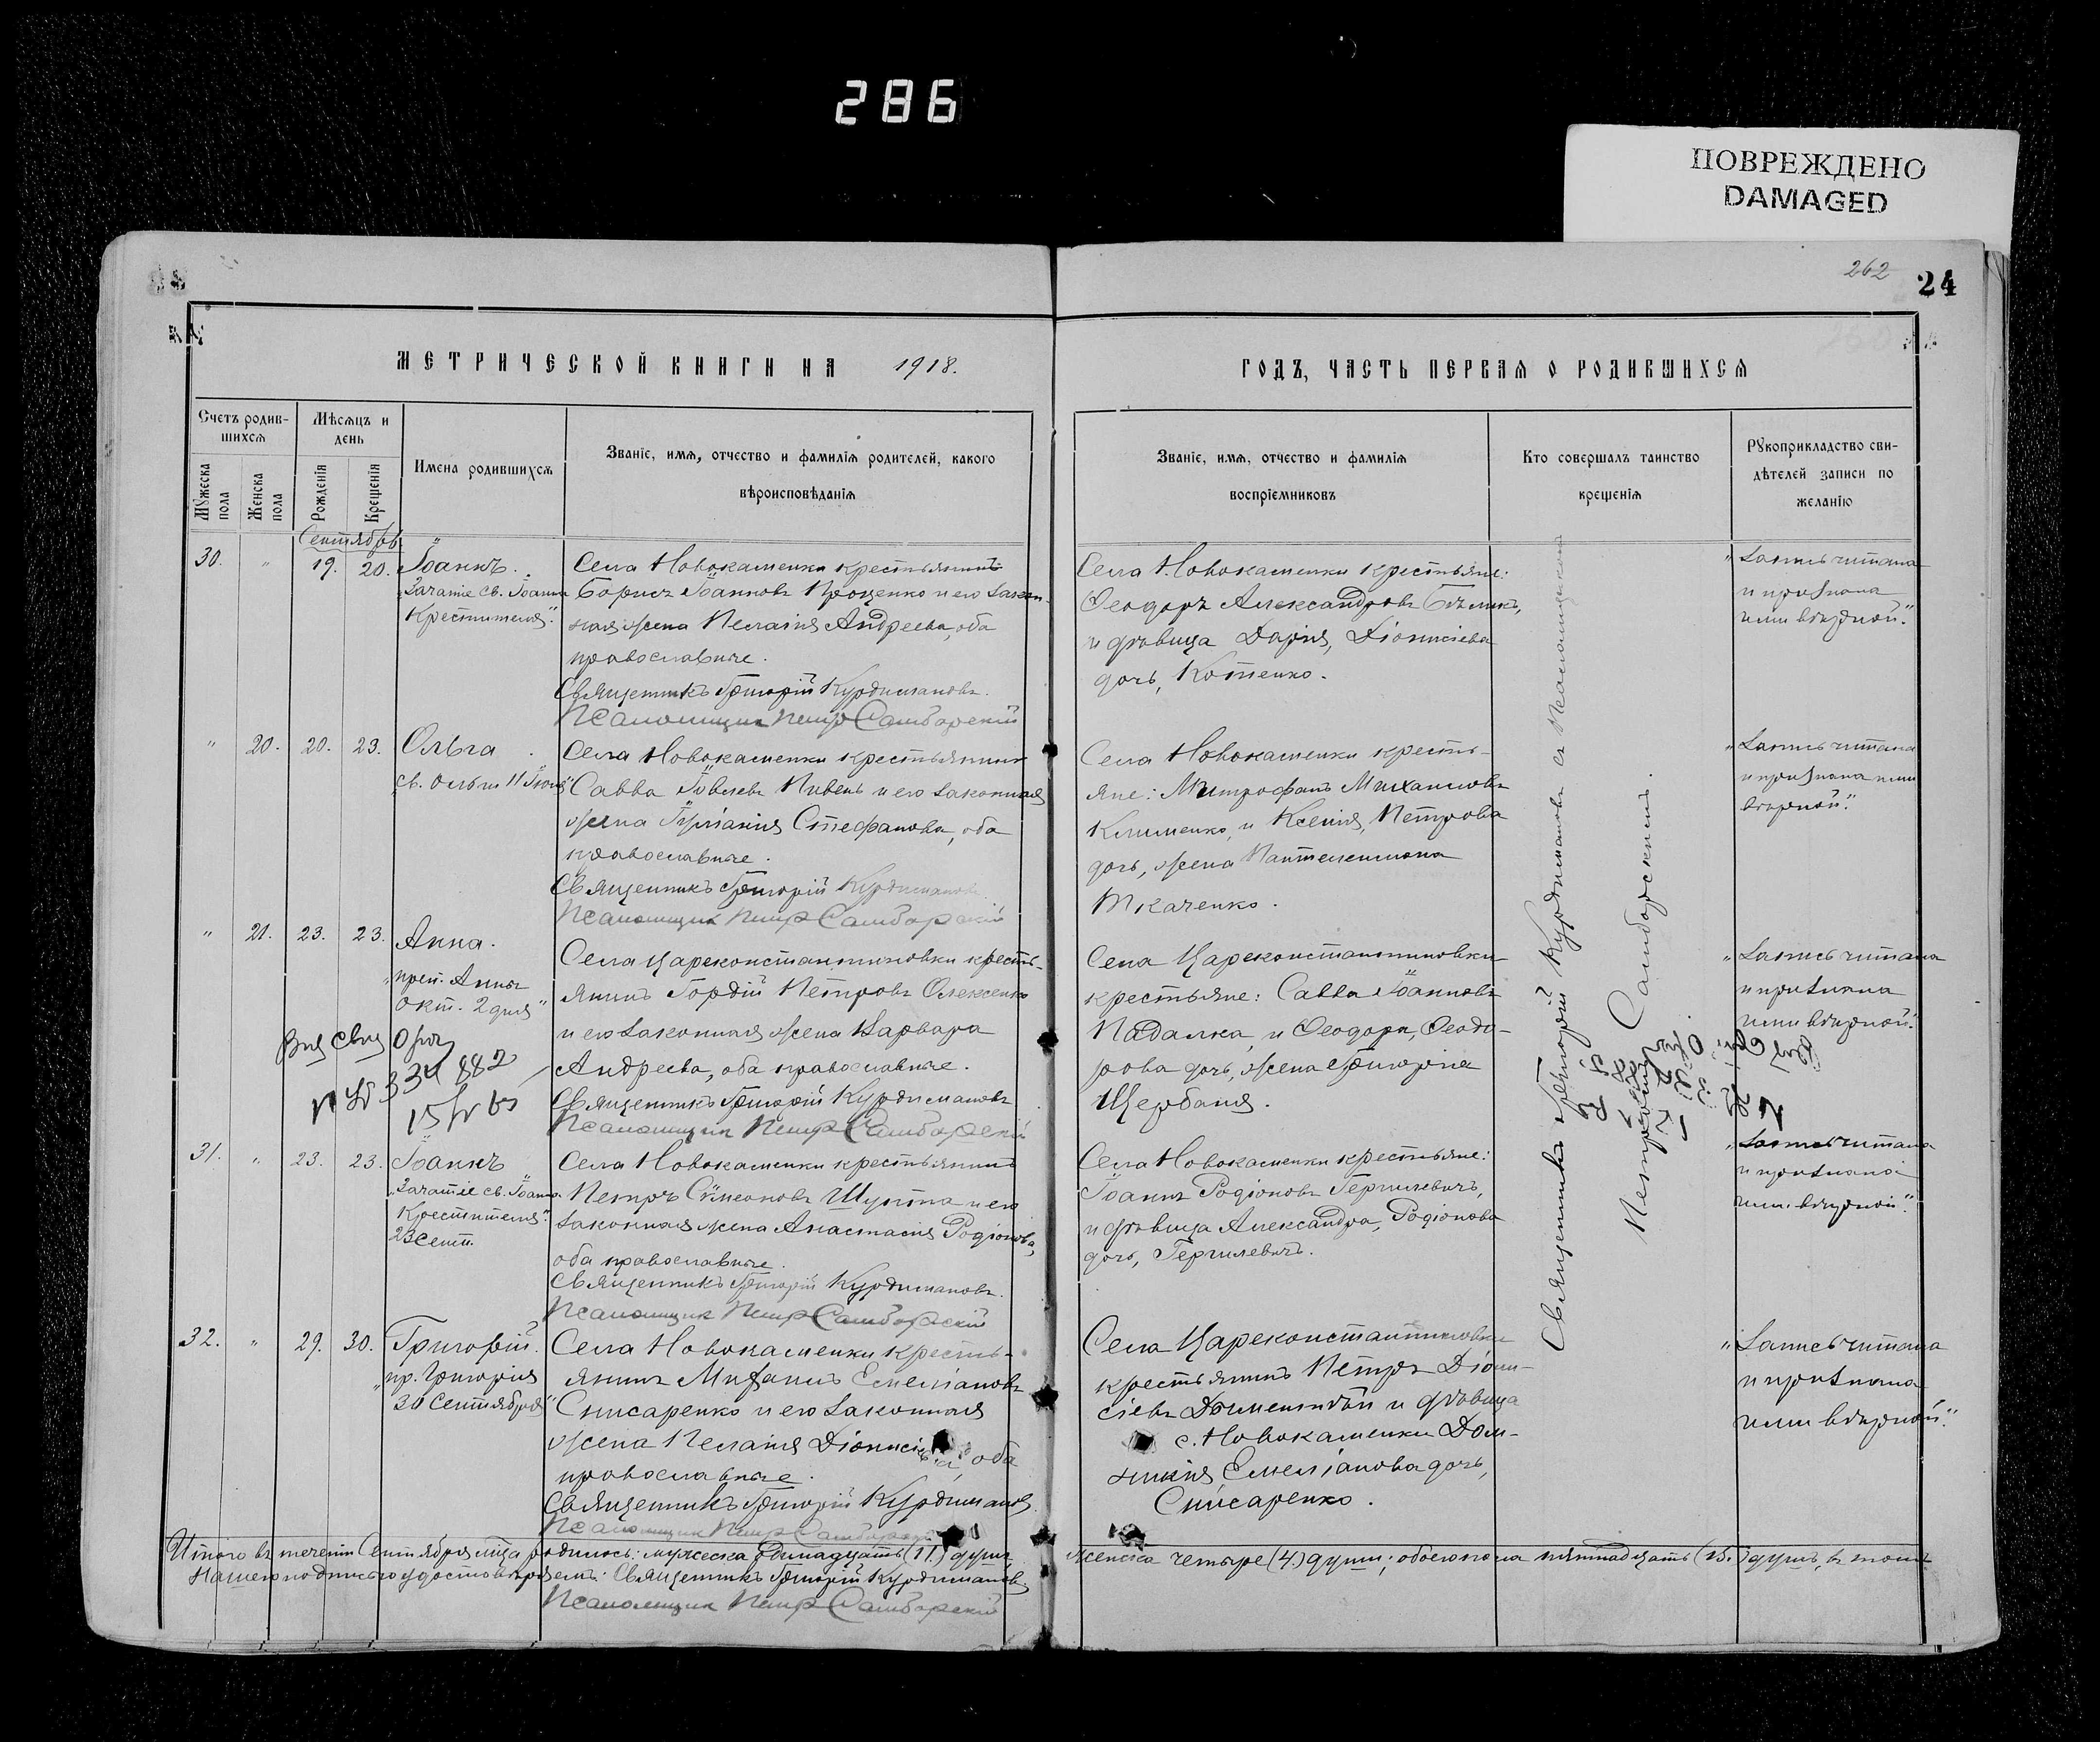 286
ПОВРЕЖДЕНО
DAMAGED
262
24
МЕТРИЧЕСКОЙ КНИГИ НА 1918.
ГОДЪ, ЧАСТЬ ПЕРВАЯ О РОДИВШИХСЯ
Счетъ родив-
шихся
Мужеска пола
Женска пола
Мѣсяцъ и
день
Рожденія
Крещенія
Имена родившихся
Званіе, имя, отчество и фамилія родителей, какого
вѣроисповѣданія
Званіе, имя, отчество и фамилія
воспріемниковъ
Кто совершалъ таинство
крещенія
Рукоприкладство сви-
дѣтелей записи по
желанію
Сентябрь
30. " 19. 20. Іоаннъ.
"Зачатіе св. Іоанна
Крестителя".
Села Новокаменки крестьянинъ
Борисъ Іоанновъ Проценко и его закон-
ная жена Пелагія Андреева, оба
православные.
Священникъ Григорій Курдимановъ.
Псаломщик Петр Самборскій
Села Новокаменки крестьяне:
Ѳеодоръ Александровъ Бѣликъ,
и дѣвица Дарія, Діонисіева
дочь, Котенко.
"Запись читана
и признана
ими вѣрной".
" 20. 20. 23. Ольга
св. Ольги 11 Іюля"
Села Новокаменки крестьянинъ
Савва Іовлевъ Пивень и его законная
жена Іуліанія Стефанова, оба
православные.
Священникъ Григорій Курдимановъ
Псаломщик Петр Самборскій
Села Новокаменки кресть-
яне: Митрофанъ Михаиловъ
Клименко, и Ксенія, Петрова
дочь, жена Пантелеимона
Ткаченко.
"Запись читана
и признана ими
вѣрной".
" 21. 23. 23. Анна.
"преп. Анны
Окт. 2 дня"
Села Цареконстантиновки кресть-
янинъ Гордій Петровъ Олексенко
и его законная жена Варвара
Андреева, оба православные.
Священникъ Григорій Курдимановъ
Псаломщик Петр Самборскій
Села Цареконстантиновки
крестьяне: Савва Іоанновъ
Падалка, и Ѳеодора, Ѳеодо-
рова дочь, жена Григорія
Щербаня.
"Запись читана
и признана
ими вѣрной".
31. " 23. 23. Іоаннъ
"Зачатіе св. Іоанна
Крестителя".
23 Сент.
Села Новокаменки крестьянинъ
Петръ Сѵмеоновъ Шульга и его
законная жена Анастасія Родіонова,
оба православные.
Священникъ Григорій Курдимановъ.
Псаломщик Петр Самборскій
Села Новокаменки крестьяне:
Іоаннъ Родіоновъ Гергилевичъ,
и дѣвица Александра, Родіонова
дочь, Гергилевичъ.
"Запись читана
и признана
ими вѣрной".
32. " 29. 30. Григорій.
"пр. Григорія
30 Сентября"
Села Новокаменки кресть-
янинъ Мифаилъ Емеліановъ
Снисаренко и его законная
жена Пелагія оба
православные.
Священникъ Григорій Курдимановъ.
Псаломщик Петр Самборскій
Села Цареконстантиновки
крестьянинъ Петръ Діони-
сіевъ и дѣвица
с. Новокаменки Дом-
никія Емеліанова дочь,
Снисаренко.
"Запись читана
и признана
ими вѣрной".
Священникъ Григорій Курдимановъ съ Псаломщикомъ
Петромъ Самборскимъ.
Итого въ теченіи Сентября м-ца родилось: мужеска одинадцать (11.) душъ, женска четыре (4.) души; обоего пола пятнадцать (15.) душъ, въ томъ
нашею подписью удостовѣряемъ: Священникъ Григорій Курдимановъ.
Псаломщик Петр Самборскій